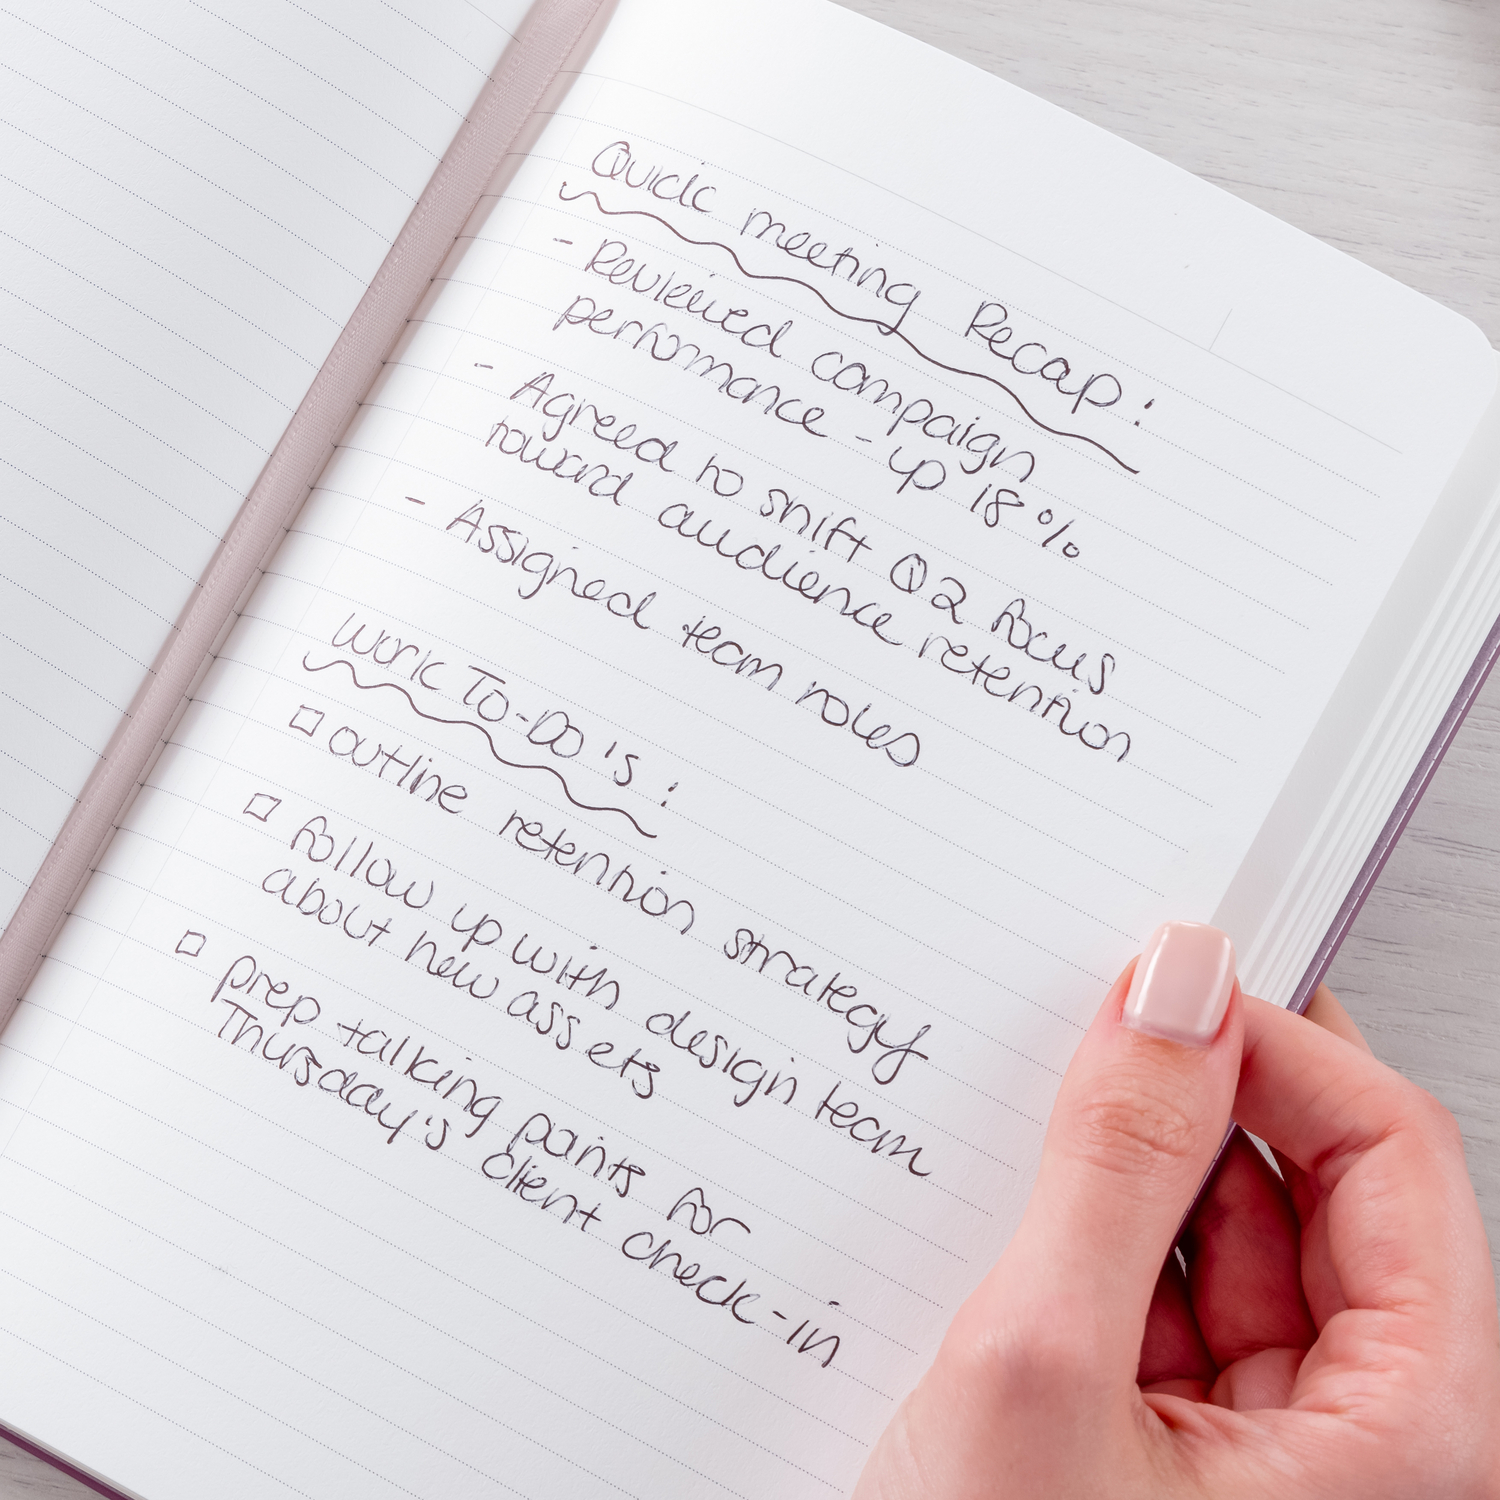 Quick meeting Recap:
- Reviewed campaign
performance - up 18%
- Agreed to shift Q2 focus
toward audience retention
- Assigned team roles
Work To-Do's:
☐ outline retention strategy
☐ follow up with design team
about new assets
☐ prep talking points for
Thursday's client check-in